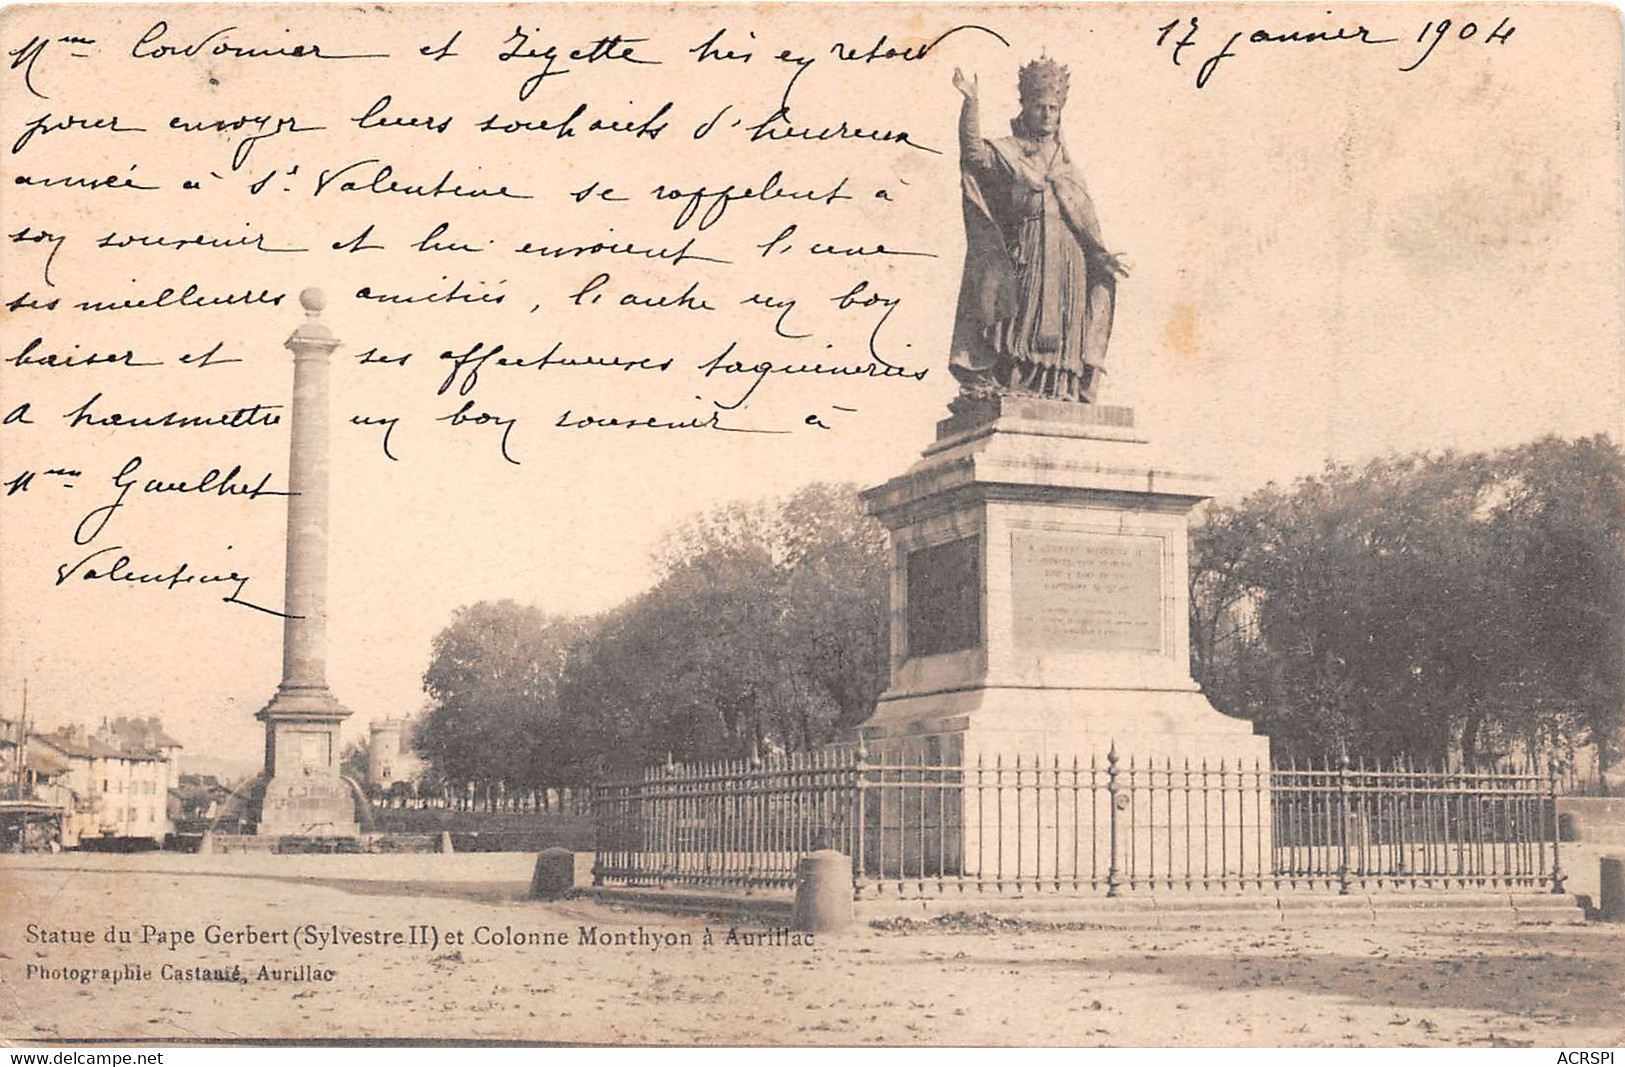 17 janvier 1904
Mme Cordonnier et Zézette très en retard
pour envoyer leurs souhaits d'heureuse
année à St Valentine se rappellent à
son souvenir et lui envoient l'une
ses meilleures amitiés, l'autre un bon
baiser et ses affectueuses taquineries
A transmettre un bon souvenir à
Mme
Valentine
Statue du Pape Gerbert (Sylvestre II) et Colonne Monthyon à Aurillac
Photographie Castanié, Aurillac
delcampe.net
ACRSPI